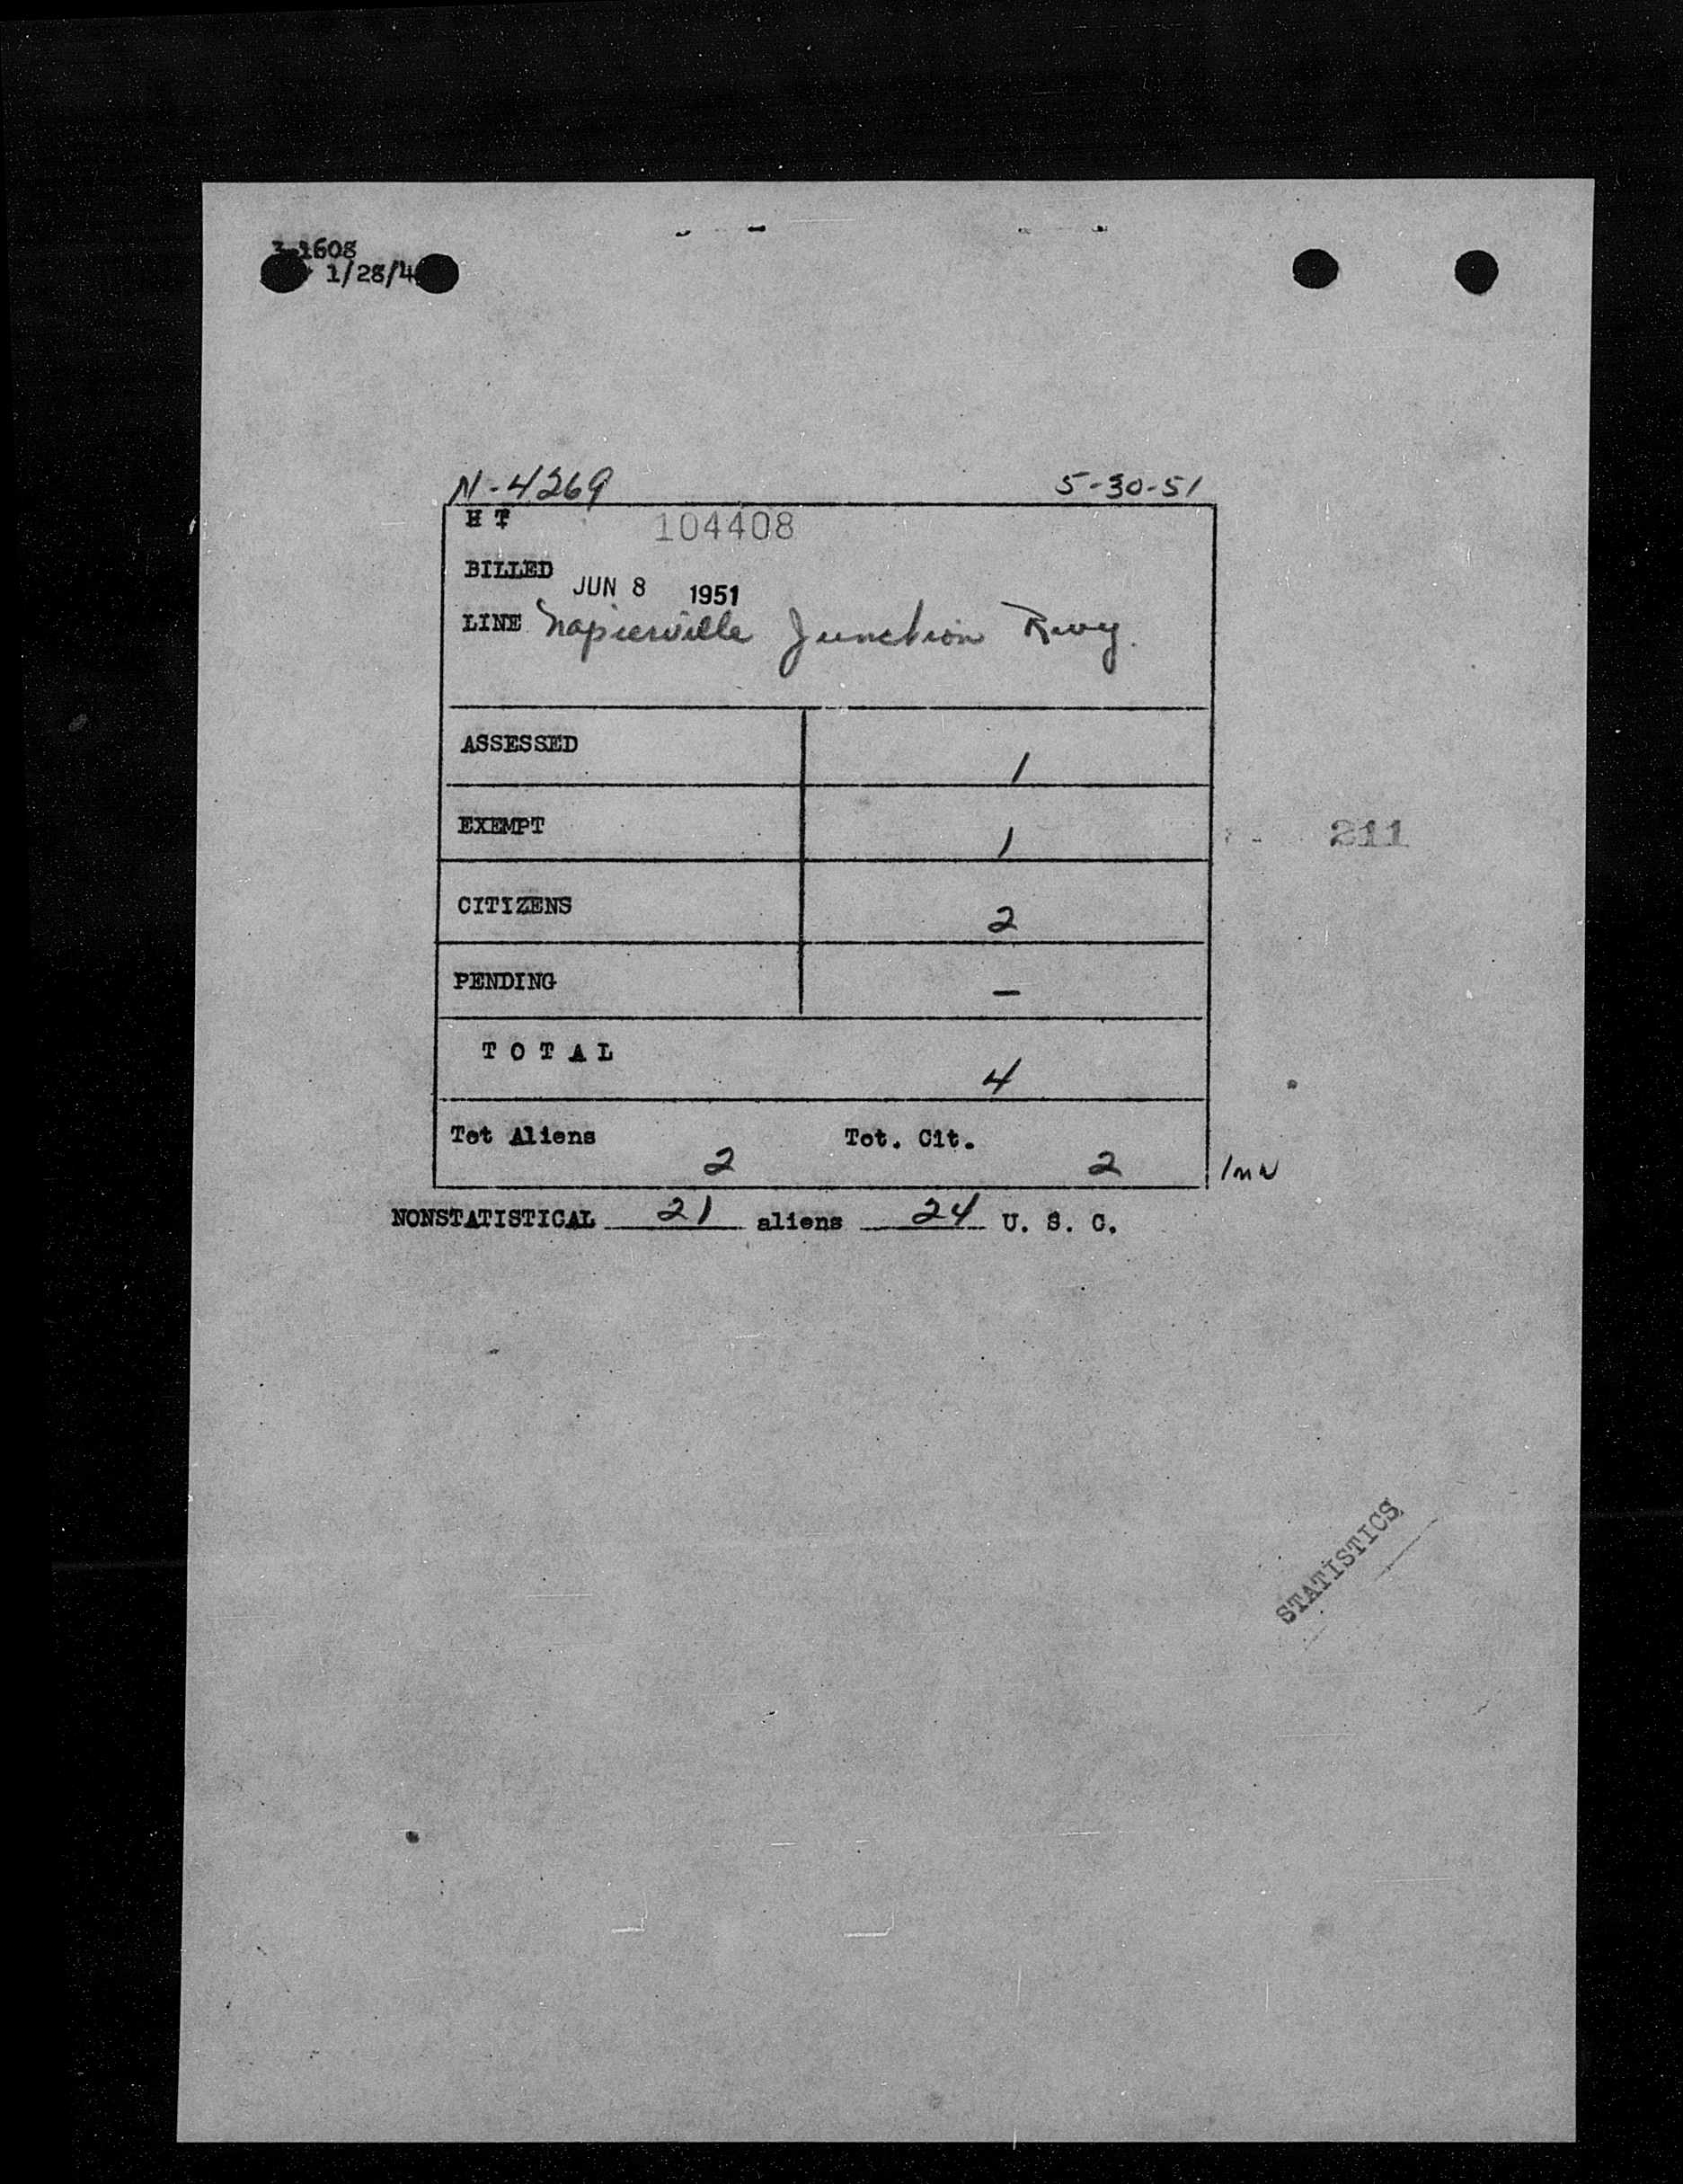 3-1608
1/28/4
N-4269 5-30-51
H T 104408
BILLED
JUN 8 1951
LINE Napierville Junction Rwy.
ASSESSED 1
EXEMPT 1
211
CITIZENS 2
PENDING –
T O T A L
4
Tot Aliens 2 Tot. Cit. 2
NONSTATISTICAL 21 aliens 24 U. S. C.
STATISTICS